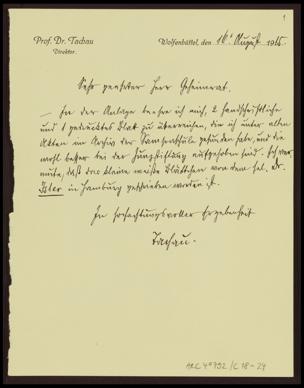 1
Prof. Dr. Tachau
Direktor.
Wolfenbüttel, den 16. August 1915.
Sehr geehrter Herr Geheimrat.
In der Anlage beehre ich mich, 2 handschriftliche
und 1 gedrucktes Blatt zu überreichen, die ich unter alten
Akten im Archiv der Samsonschule gefunden habe, und die
wohl besser bei der Zunzstiftung aufgehoben sind. Ich ver-
mute, daß das kleine weiße Blättchen von dem sel. Dr.
Isler in Hamburg geschrieben worden ist.
In hochachtungsvoller Ergebenheit
Tachau.
ARC 4° 792 / C 18 - 24